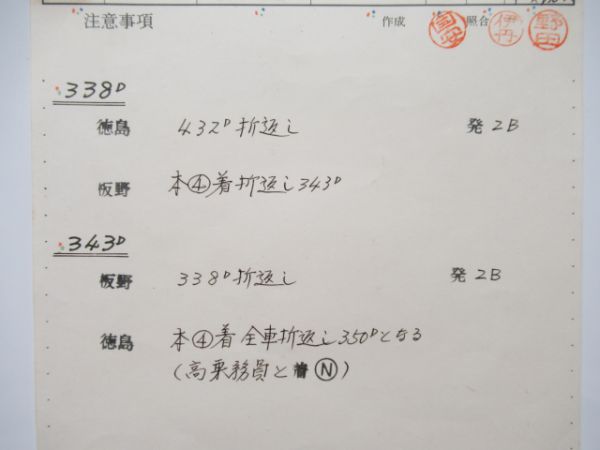 注意事項 作成 照合 伊丹 野田
338D
徳島 432D折返し 発 2B
板野 本④着折返し343D
343D
板野 338D折返し 発 2B
徳島 本④着 全車折返し350Dとなる
(高乗務員と Ⓝ)